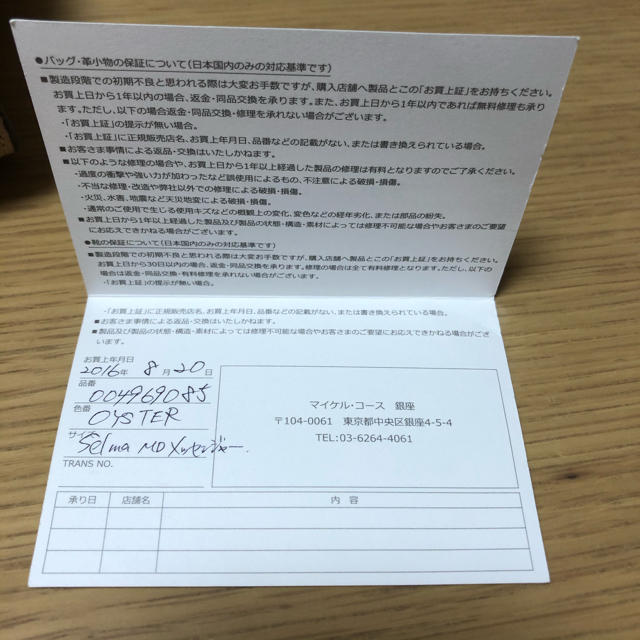 ●バッグ・革小物の保証について(日本国内のみの対応基準です)
■製造段階での初期不良と思われる際は大変お手数ですが、購入店舗へ製品とこの「お買上証」をお持ちください。
お買上日から1年以内の場合、返金・同品交換を承ります。また、お買上日から1年以内であれば無料修理も承り
ます。ただし、以下の場合返金・同品交換・修理を承れない場合がございます。
・「お買上証」の提示が無い場合。
・「お買上証」に正規販売店名、お買上年月日、品番などの記載がない、または書き換えられている場合。
■お客さま事情による返品・交換はいたしかねます。
■以下のような修理の場合や、お買上日から1年以上経過した製品の修理は有料となりますのでご了承ください。
・過度の衝撃や強い力が加わったなど誤使用によるもの、不注意による破損・損傷。
・不当な修理・改造や弊社以外での修理による破損・損傷。
・火災、水害、地震など天災地変による破損・損傷。
・通常のご使用で生じる使用キズなどの概観上の変化、変色などの経年劣化、または部品の紛失。
■お買上日から1年以上経過した製品及び製品の状態・構造・素材によっては修理不可能な場合やお客さまのご要望
にお応えできかねる場合がございます。
●靴の保証について(日本国内のみの対応基準です)
■製造段階での初期不良と思われる際は大変お手数ですが、購入店舗へ製品とこの「お買上証」をお持ちください。
お買上日から30日以内の場合、返金・同品交換を承ります。修理の場合は全て有料修理となります。ただし、以下の
場合は返金・同品交換・有料修理を承れない場合がございます。
・「お買上証」の提示が無い場合。
・「お買上証」に正規販売店名、お買上年月日、品番などの記載がない、または書き換えられている場合。
■お客さま事情による返品・交換はいたしかねます。
■製品及び製品の状態・構造・素材によっては修理不可能な場合やお客さまのご要望にお応えできかねる場合がござ
います。
お買上年月日
2016年 8月20日
品番
004969085
色番
OYSTER
サイズ
Selma MD メッセンジャー.
TRANS NO.
マイケル・コース 銀座
〒104-0061 東京都中央区銀座4-5-4
TEL:03-6264-4061
承り日 店舗名 内 容